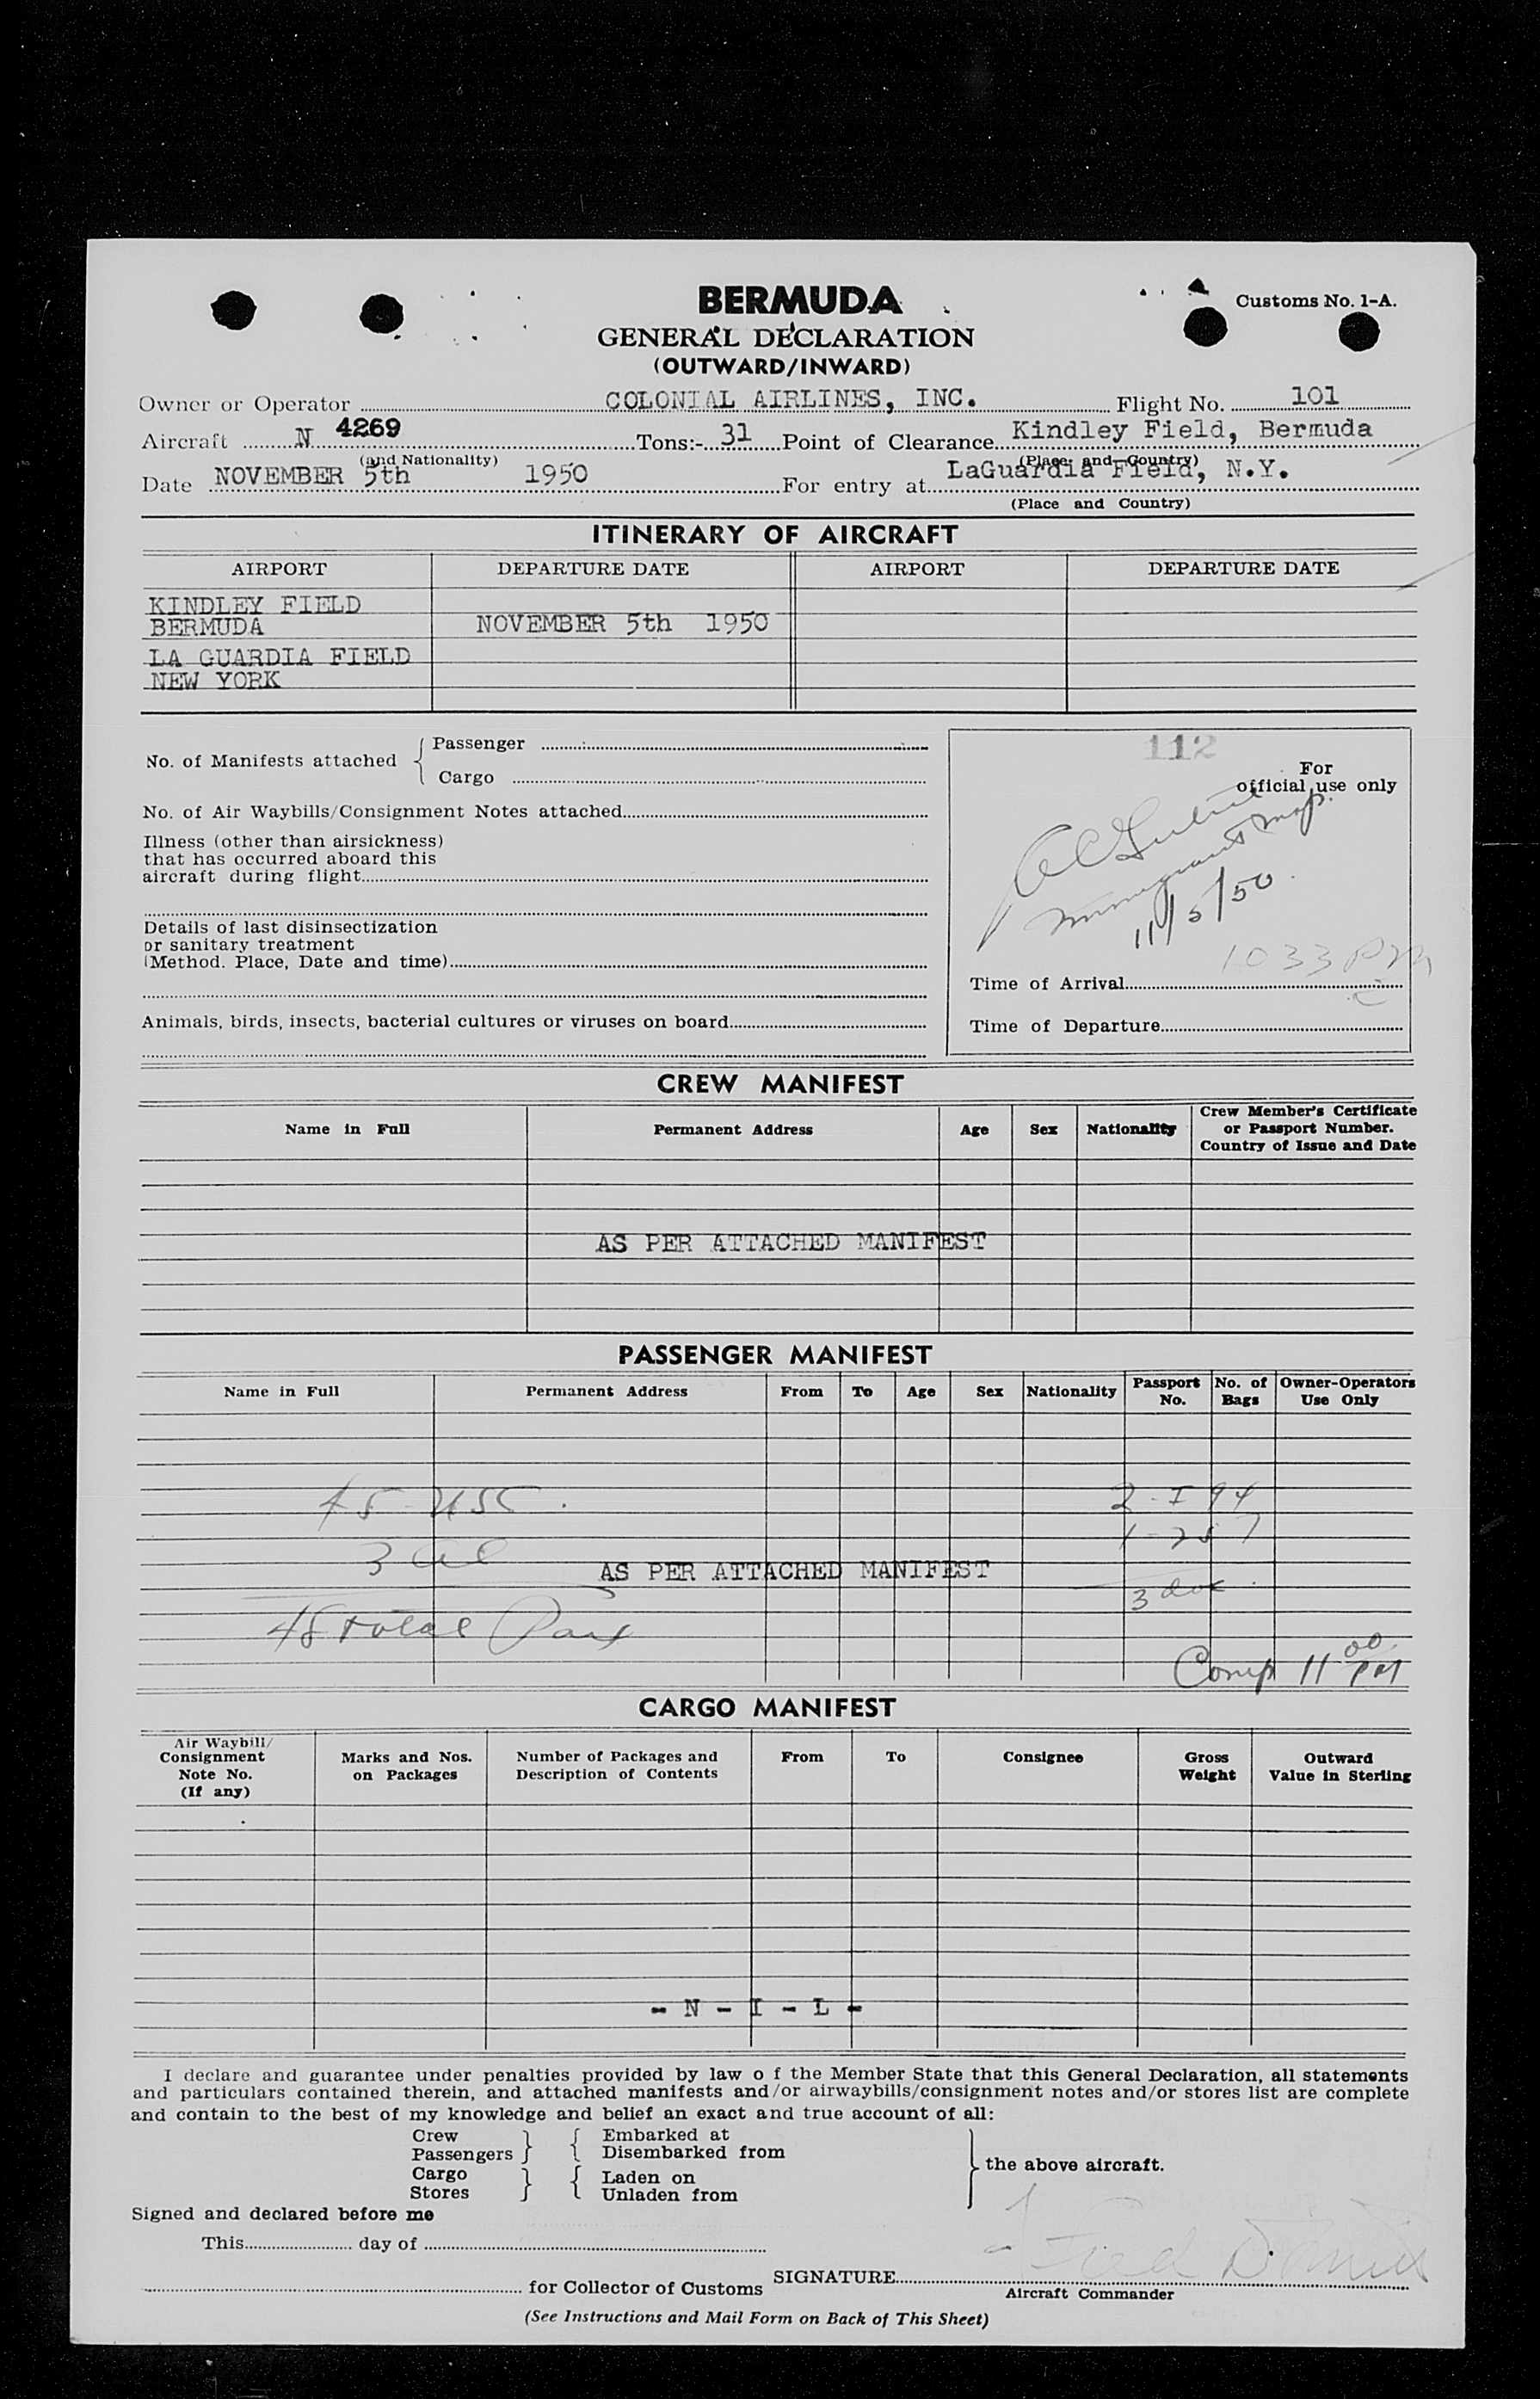 BERMUDA
Customs No. 1-A.
GENERAL DECLARATION
(OUTWARD/INWARD)
Owner or Operator COLONIAL AIRLINES, INC. Flight No. 101
Aircraft N 4269 Tons:- 31 Point of Clearance Kindley Field, Bermuda
(and Nationality) (Place and Country)
Date NOVEMBER 5th 1950 For entry at LaGuardia Field, N.Y.
(Place and Country)
ITINERARY OF AIRCRAFT
AIRPORT DEPARTURE DATE AIRPORT DEPARTURE DATE
KINDLEY FIELD
BERMUDA NOVEMBER 5th 1950
LA GUARDIA FIELD
NEW YORK
No. of Manifests attached { Passenger
Cargo
No. of Air Waybills/Consignment Notes attached
Illness (other than airsickness)
that has occurred aboard this
aircraft during flight
Details of last disinsectization
or sanitary treatment
(Method. Place, Date and time)
Animals, birds, insects, bacterial cultures or viruses on board
112
For
official use only
Immigrant Insp.
11/5/50
1033 PM
Time of Arrival
Time of Departure
CREW MANIFEST
Name in Full Permanent Address Age Sex Nationality Crew Member's Certificate
or Passport Number.
Country of Issue and Date
AS PER ATTACHED MANIFEST
PASSENGER MANIFEST
Name in Full Permanent Address From To Age Sex Nationality Passport No. No. of Bags Owner-Operators Use Only
45 USC. 2 - I 94
3 al 1 - 257
AS PER ATTACHED MANIFEST
3 doc
48 total Pass
Comp 11 00 PM
CARGO MANIFEST
Air Waybill/
Consignment
Note No.
(If any)
Marks and Nos.
on Packages
Number of Packages and
Description of Contents
From
To
Consignee
Gross
Weight
Outward
Value in Sterling
- N - I - L -
I declare and guarantee under penalties provided by law o f the Member State that this General Declaration, all statements
and particulars contained therein, and attached manifests and/or airwaybills/consignment notes and/or stores list are complete
and contain to the best of my knowledge and belief an exact and true account of all:
Crew } { Embarked at
Passengers } { Disembarked from
} the above aircraft.
Cargo } { Laden on
Stores } { Unladen from
Signed and declared before me
This day of
for Collector of Customs SIGNATURE
Aircraft Commander
(See Instructions and Mail Form on Back of This Sheet)